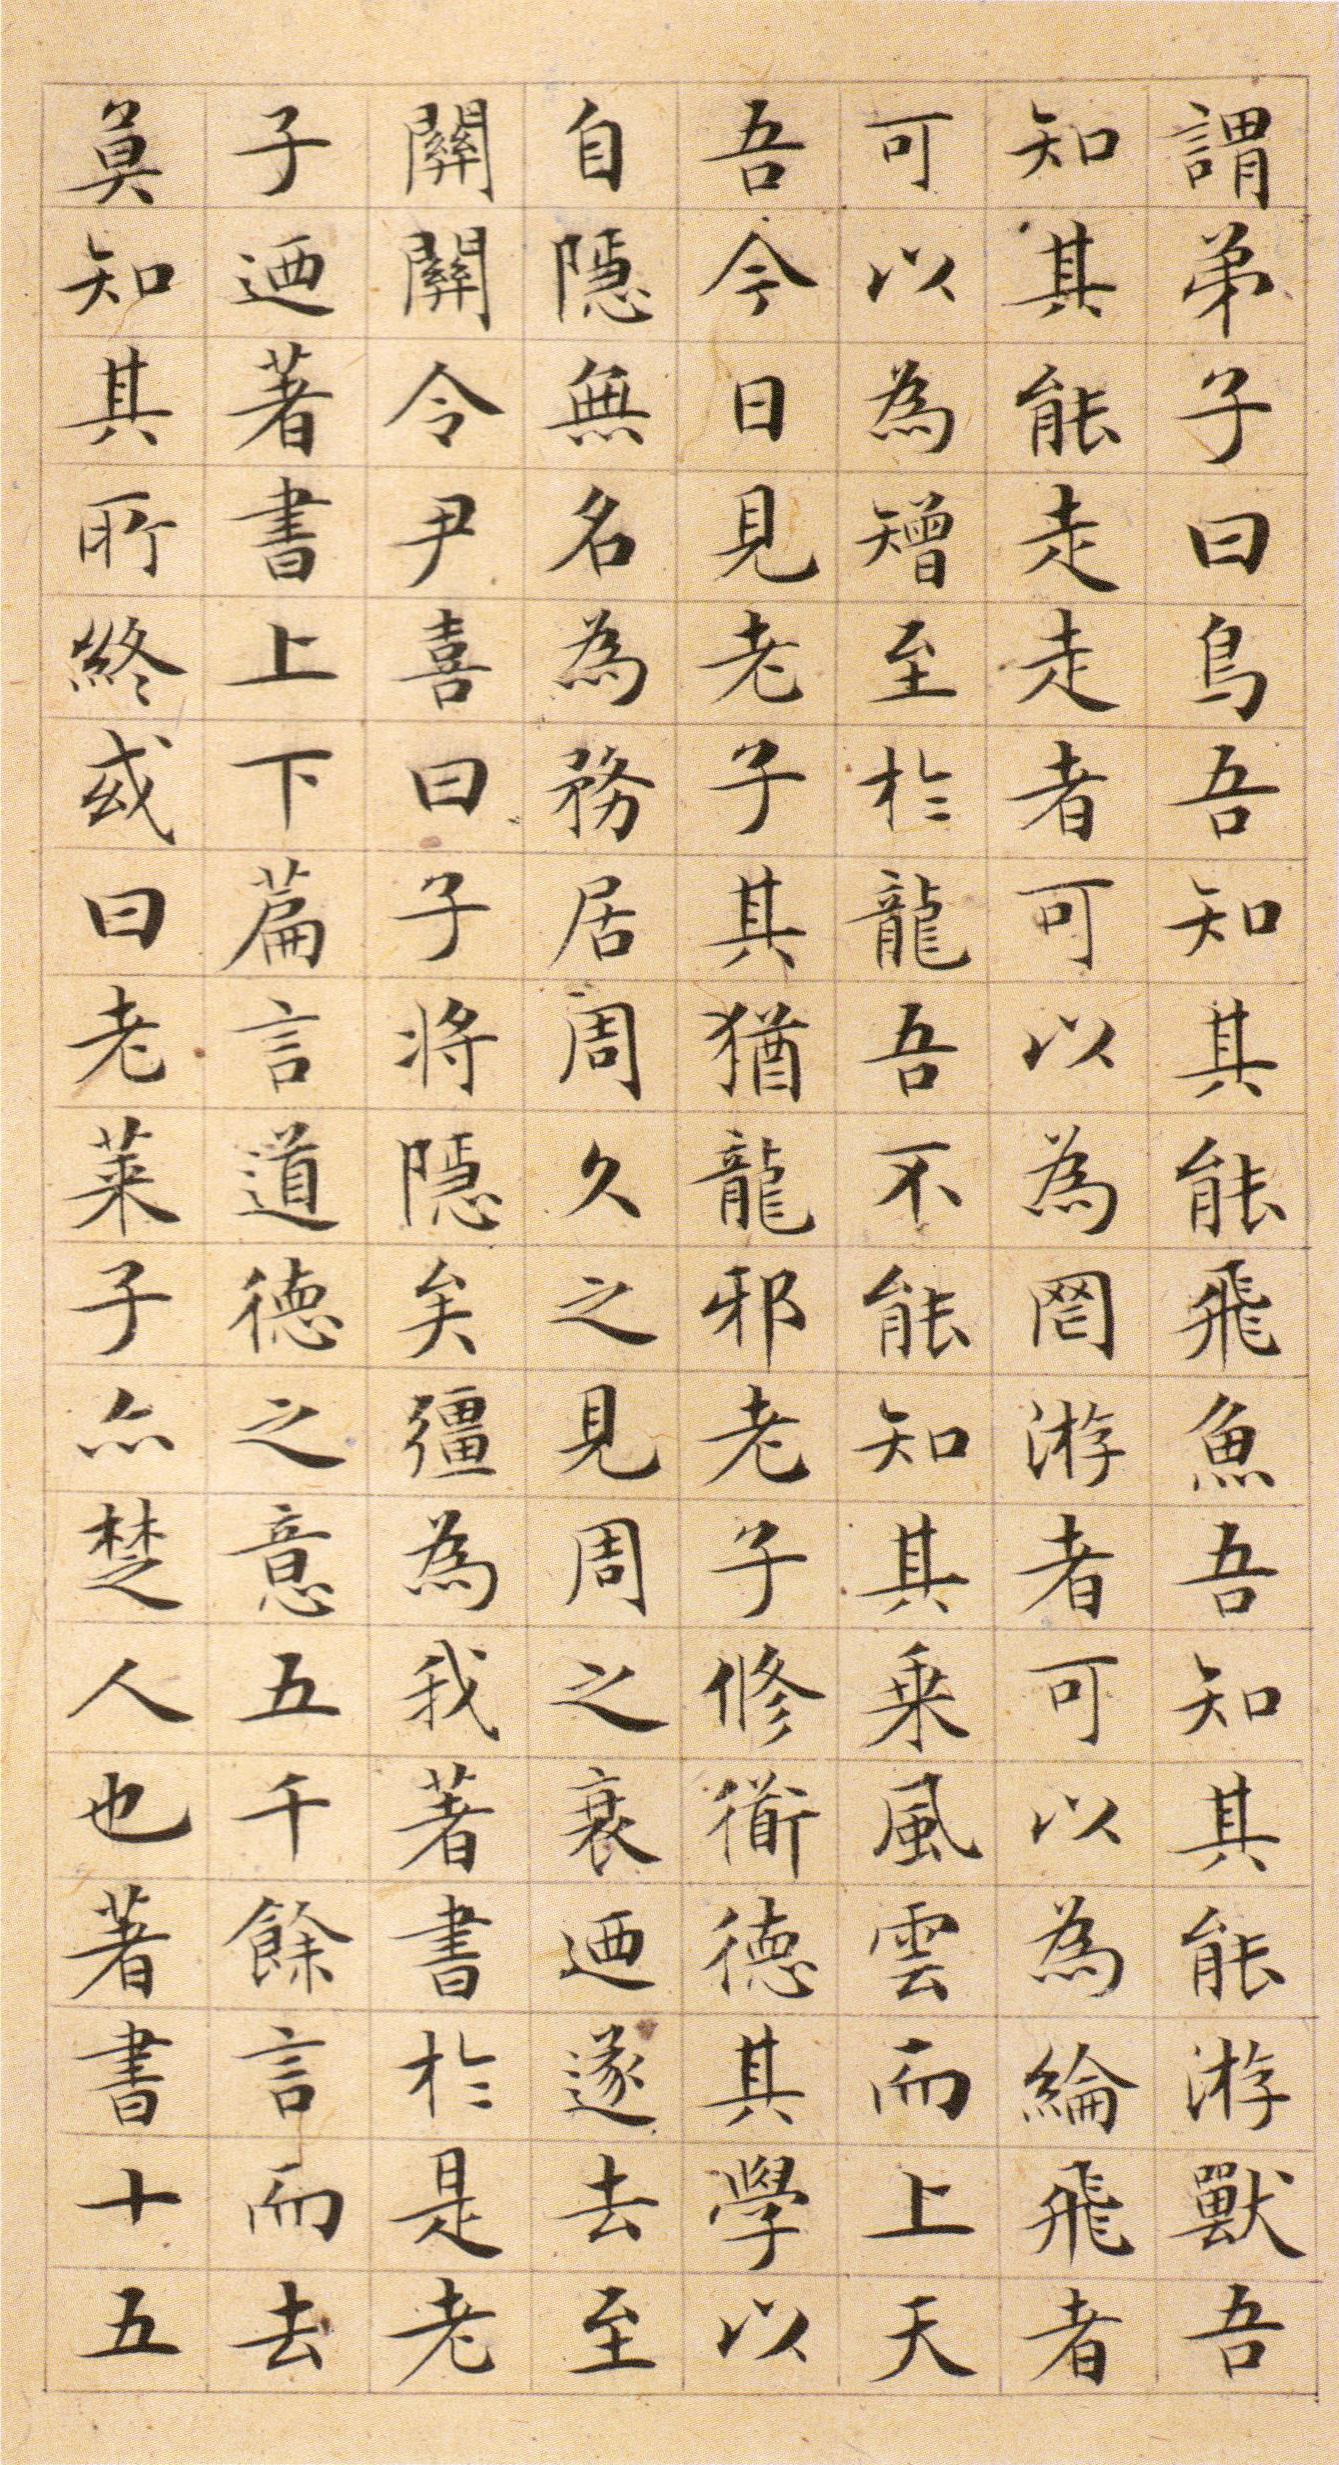 謂弟子曰鳥吾知其能飛魚吾知其能游獸吾
知其能走走者可以為罔游者可以為綸飛者
可以為矰至於龍吾不能知其乘風雲而上天
吾今日見老子其猶龍邪老子修衜德其學以
自隱無名為務居周久之見周之衰迺遂去至
關關令尹喜曰子将隱矣彊為我著書於是老
子迺著書上下篇言道德之意五千餘言而去
莫知其所終或曰老莱子亦楚人也著書十五